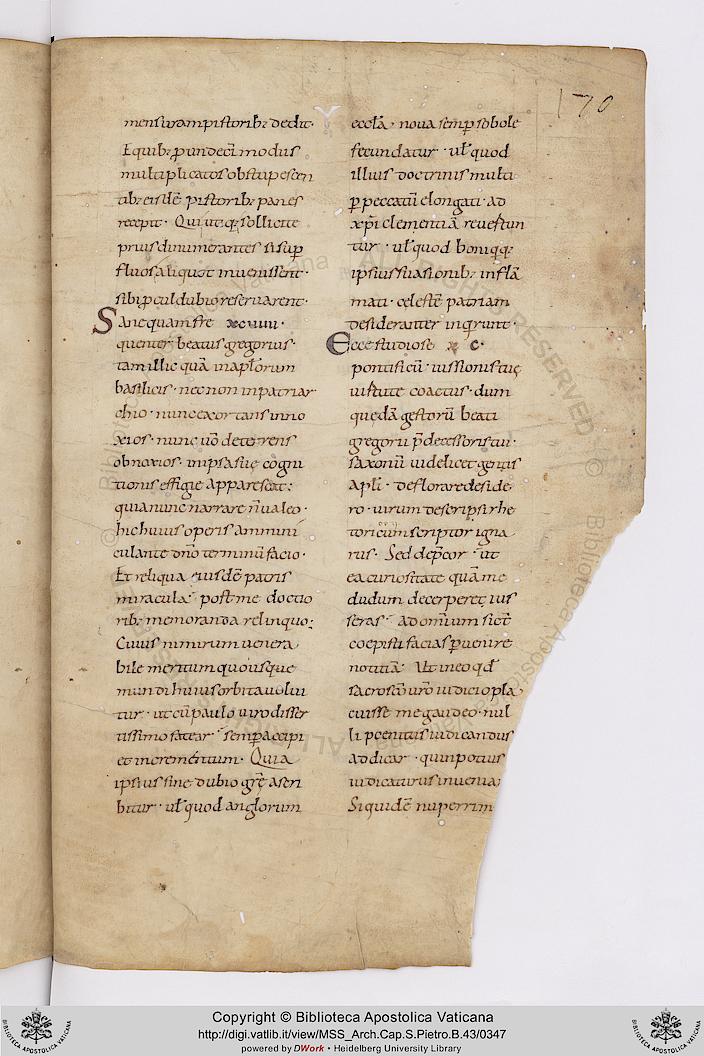 170
mensuram pistorib; dedit·
E quib; p̱ undeci modius
multiplicatos obstupescen
tib; eisdē pistorib; panes
recepit· Qui ut q;sollicite
prius dinumerantes sisup̄
fluos aliquot invenissent·
sibi p̱cul dubio reservarent·
Sane quam fre xcviiii·
quenter beatus gregorius·
tam illic quā in aplōrum
basilicis· necnon in patriar
chio· nunc exortans inno
xios· nunc uō deterrens
obnoxios· in ipsa suę cogni
tionis effigie apparescat:
quia nunc narrare n̄ valeo·
hic huius operis ammini
culante dnō terminū facio·
Et reliqua eiusdē patris
miracula· post me doctio
rib; memoranda relinquo;
Cuius nimirum venera
bile meritum quousque
mundi huius orbita volvi
tur· ut cū paulo viro disser
tissimo fatear· semp̱ accipi
et incrementum· Quia
ipsius sine dubio grē ascri
bitur· ul̄ quod anglorum
ecclā· nova semp̱ sobole
fecundatur· ul̄ quod
illius doctrinis multi
p̱ peccatū elongati· ad
xp̄i clementiā revertun
tur· ul̄ quod boniq;q;
ipsius suasionib; inflā
mati· celestē patriam
desideranter inqrunt·
Ecce studiose c·
pontificū· iussionis tuę
virtute coactus· dum
quedā gestorū beati
gregorii p̄decessoris tui·
saxonū videlicet gentis
apli· deflorare deside
ro· virum descripsi rhe
toricum scriptor igna
rus· Sed dep̄cor· ut
ea curiositate quā me
dudum decerperet ius
seras· ad omium sicē
coepisti facias p̱venire
notitiā· Ut in eo qd̄
sacroscō urō iudicio pla
cuisse me gaudeo· nul
li poenitus iudicandus
addicar· qui n potius
iudicaturus invenia
Siquidē nuperrim
Copyright © Biblioteca Apostolica Vaticana
http://digi.vatlib.it/view/MSS_Arch.Cap.S.Pietro.B.43/0347
powered by DWork • Heidelberg University Library